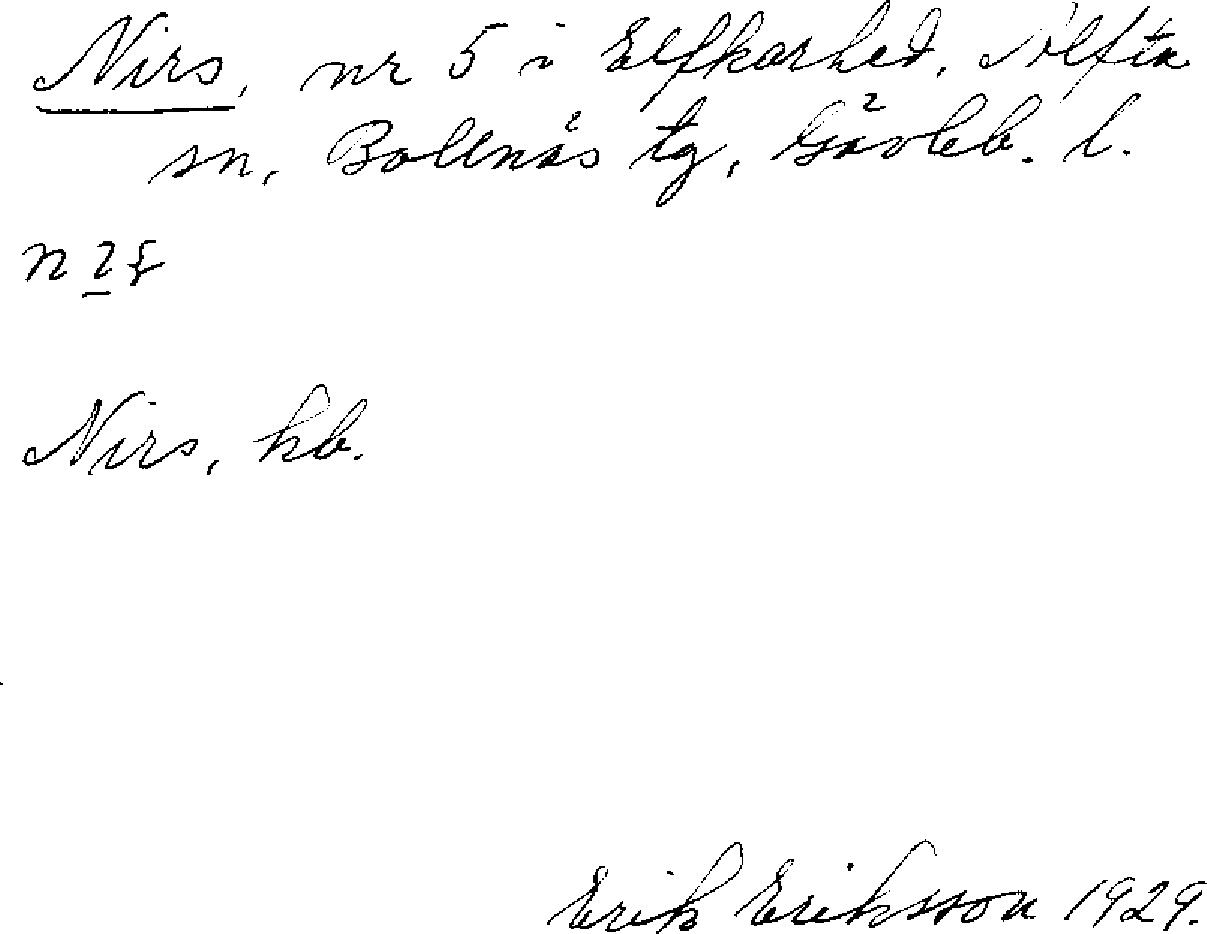 Nirs, nr 5 i Elfkarhed, Alfta
sn, Bollnäs tg, Gävleb. l.
Nirs, kb.
Erik Eriksson 1929.